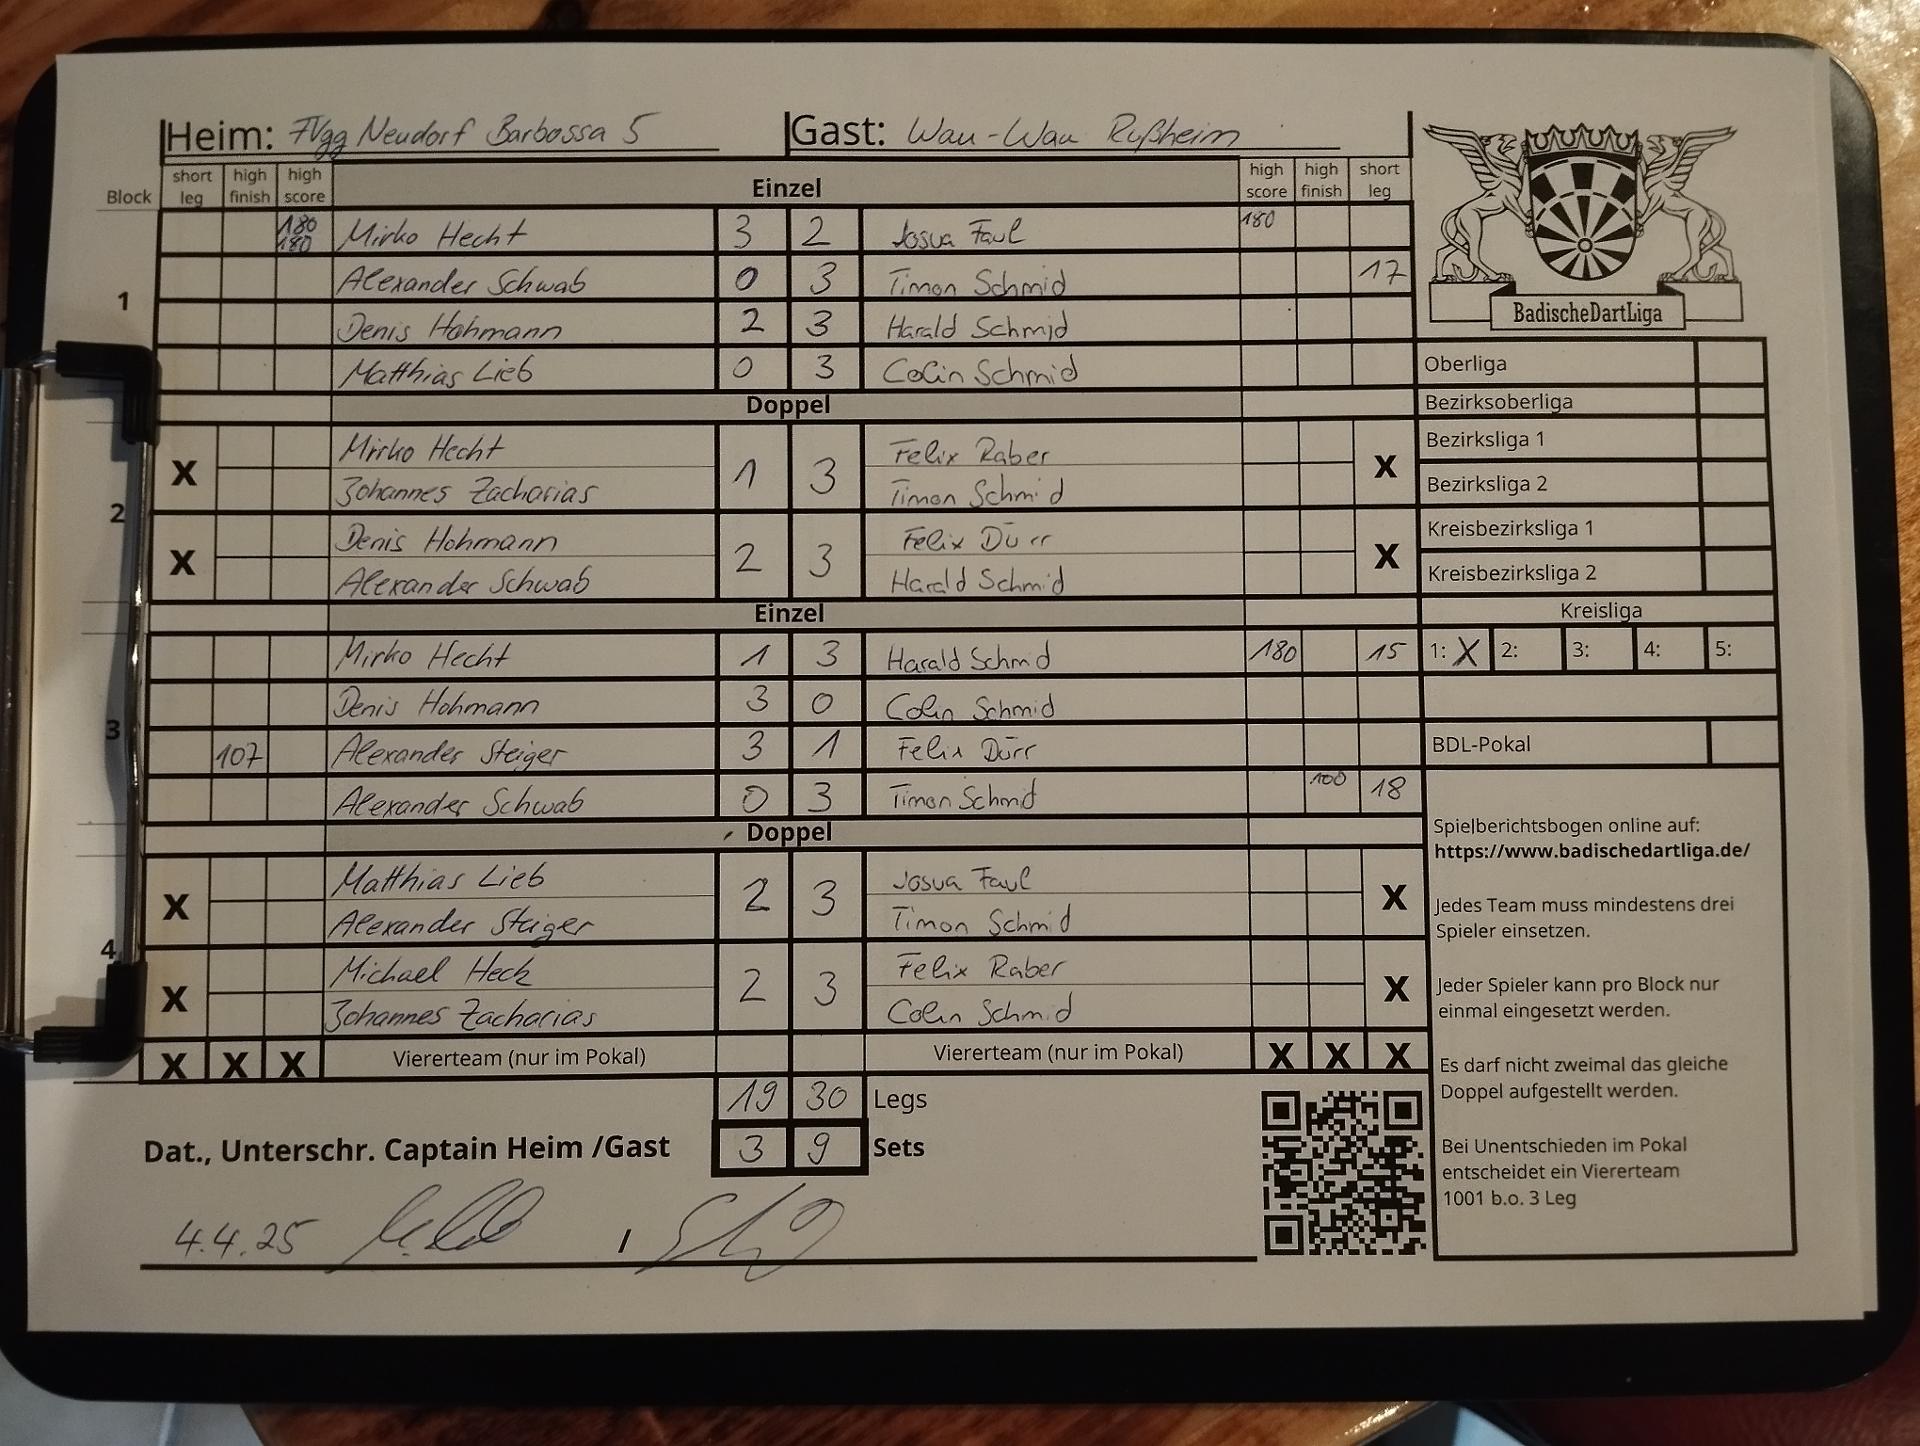 Heim: FVgg Neudorf Barbossa 5 Gast: Wau-Wau Rußheim
Block short leg high finish high score Einzel high score high finish short leg
180 180 Mirko Hecht 3 2 Josua Faul 180
1
Alexander Schwab 0 3 Timon Schmid 17
Denis Hohmann 2 3 Harald Schmid
Matthias Lieb 0 3 Colin Schmid
Doppel
2
X Mirko Hecht 1 3 Felix Raber X
Johannes Zacharias Timon Schmid
X Denis Hohmann 2 3 Felix Dürr X
Alexander Schwab Harald Schmid
Einzel
3
Mirko Hecht 1 3 Harald Schmid 180 15
Denis Hohmann 3 0 Colin Schmid
107 Alexander Steiger 3 1 Felix Dürr
Alexander Schwab 0 3 Timon Schmid 100 18
Doppel
4
X Matthias Lieb 2 3 Josua Faul X
Alexander Steiger Timon Schmid
X Michael Heck 2 3 Felix Raber X
Johannes Zacharias Colin Schmid
X X X Viererteam (nur im Pokal) Viererteam (nur im Pokal) X X X
19 30 Legs
3 9 Sets
Dat., Unterschr. Captain Heim /Gast
4.4.25 /
BadischeDartLiga
Oberliga
Bezirksoberliga
Bezirksliga 1
Bezirksliga 2
Kreisbezirksliga 1
Kreisbezirksliga 2
Kreisliga
1: X 2: 3: 4: 5:
BDL-Pokal
Spielberichtsbogen online auf:
https://www.badischedartliga.de/
Jedes Team muss mindestens drei
Spieler einsetzen.
Jeder Spieler kann pro Block nur
einmal eingesetzt werden.
Es darf nicht zweimal das gleiche
Doppel aufgestellt werden.
Bei Unentschieden im Pokal
entscheidet ein Viererteam
1001 b.o. 3 Leg